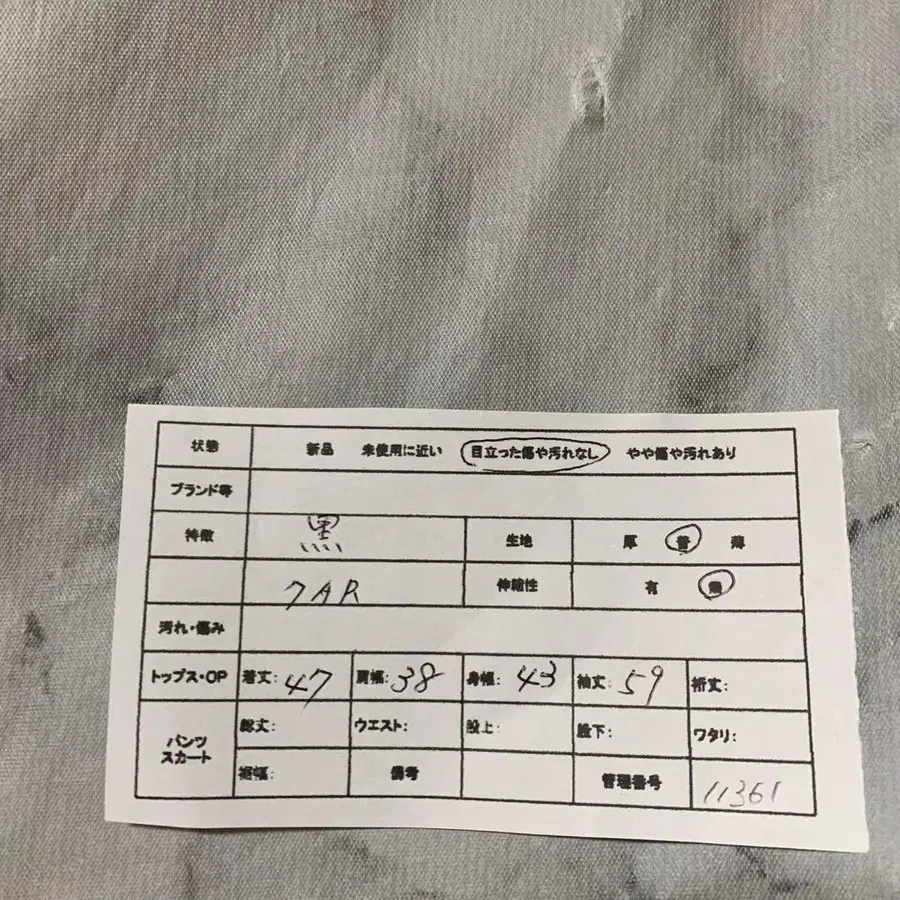 状態 新品 未使用に近い 目立った傷や汚れなし やや傷や汚れあり
ブランド等
特徴 黒 生地 厚 普 薄
7AR 伸縮性 有 無
汚れ・傷み
トップス・OP 着丈: 47 肩幅: 38 身幅: 43 袖丈: 59 裄丈:
パンツ スカート 総丈: ウエスト: 股上: 股下: ワタリ:
裾幅: 備考 管理番号 11361